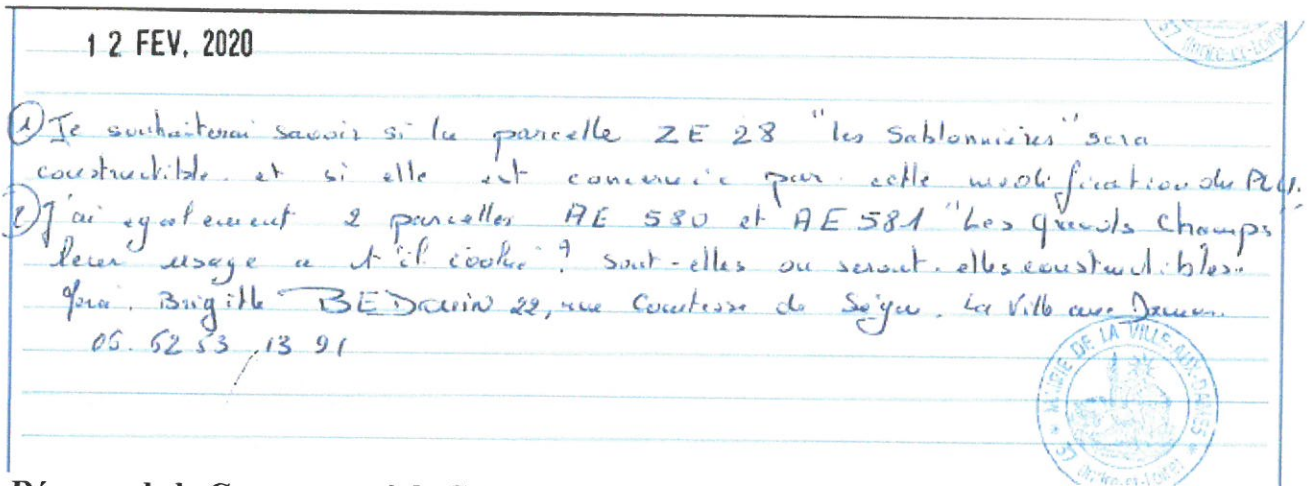 12 FEV. 2020
INDRE-ET-LOIRE
① Je souhaiterai savoir si la parcelle ZE 28 "les Sablonnières" sera
constructible. et si elle est concernée par cette modification du PLU.
② J'ai egalement 2 parcelles AE 580 et AE 581 "Les grands Champs"
leur usage a t'il évolué ? Sont-elles ou seront-elles constructibles.
Brigitte BEDOUIN 22, rue Comtesse de Ségur. La Ville aux Dames.
13 91
MAIRIE DE LA VILLE-AUX-DAMES